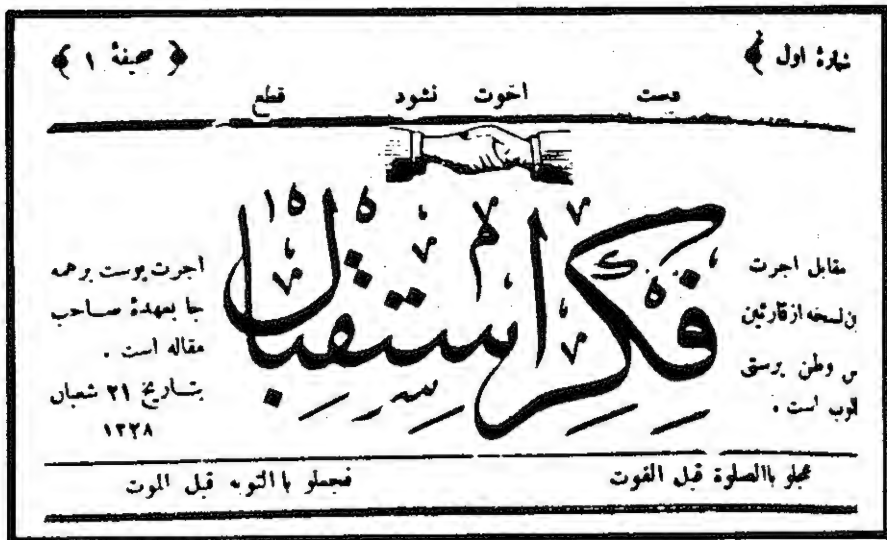 شمارهٔ اول
صحیفهٔ ۱
اخوت نشود قطع
فکر استقبال
مقابل اجرت
نسخه از قارئین
وطن پرستی
است .
اجرت پوست برهمه
جا بعهدهٔ صاحب
مقاله است .
بتاریخ ۲۱ شعبان
۱۳۲۸
عجلو باالصلوة قبل الفوت
فجعلو باالتوبه قبل الموت